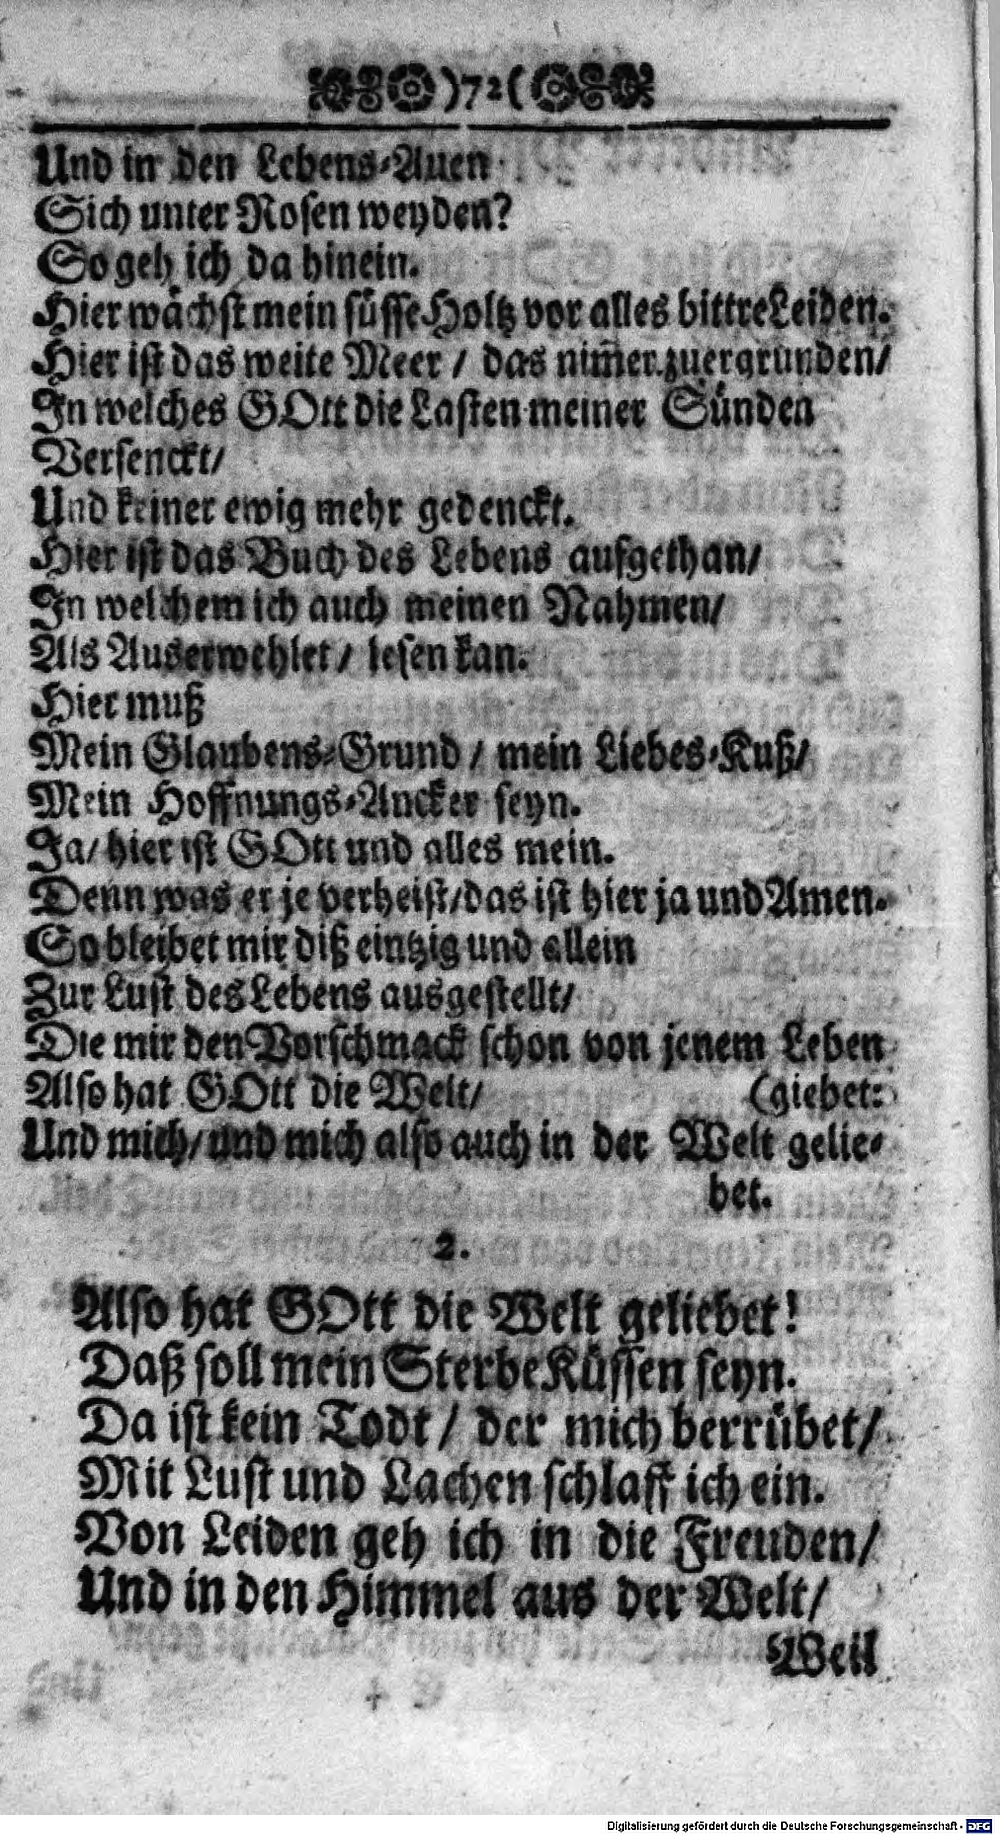 )72(
Und in den Lebens-Auen
Sich unter Rosen weyden?
So geh ich da hinein.
Hier wächst mein süsse Holtz vor alles bittre Leiden.
Hier ist das weite Meer / das nim̃er zuergrunden/
In welches GOtt die Lasten meiner Sünden
Versenckt/
Und keiner ewig mehr gedenckt.
Hier ist das Buch des Lebens aufgethan/
In welchem ich auch meinen Nahmen/
Als Auserwehlet/ lesen kan.
Hier muß
Mein Glaubens-Grund / mein Liebes-Kuß/
Mein Hoffnungs-Ancker seyn.
Ja/ hier ist GOtt und alles mein.
Denn was er je verheist/das ist hier ja und Amen.
So bleibet mir diß eintzig und allein
Zur Lust des Lebens ausgestellt/
Die mir den Vorschmack schon von jenem Leben
Also hat GOtt die Welt/ (giebet:
Und mich/ und mich also auch in der Welt gelie-
bet.
2.
Also hat GOtt die Welt geliebet!
Daß soll mein SterbeKüssen seyn.
Da ist kein Todt/ der mich berrübet/
Mit Lust und Lachen schlaff ich ein.
Von Leiden geh ich in die Freuden/
Und in den Himmel aus der Welt/
Weil
Digitalisierung gefördert durch die Deutsche Forschungsgemeinschaft - DFG